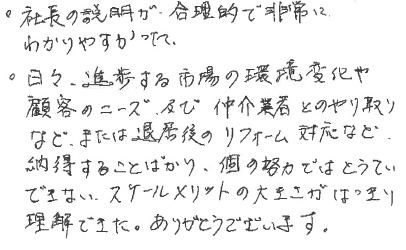 。社長の説明が、合理的で非常に
わかりやすかった。
。日々、進歩する市場の環境変化や
顧客のニーズ、及び仲介業者とのやり取り
など、または退居後のリフォーム対応など、
納得することばかり、個の努力ではとうてい
できない、スケールメリットの大きさがはっきり
理解できた。ありがとうございます。